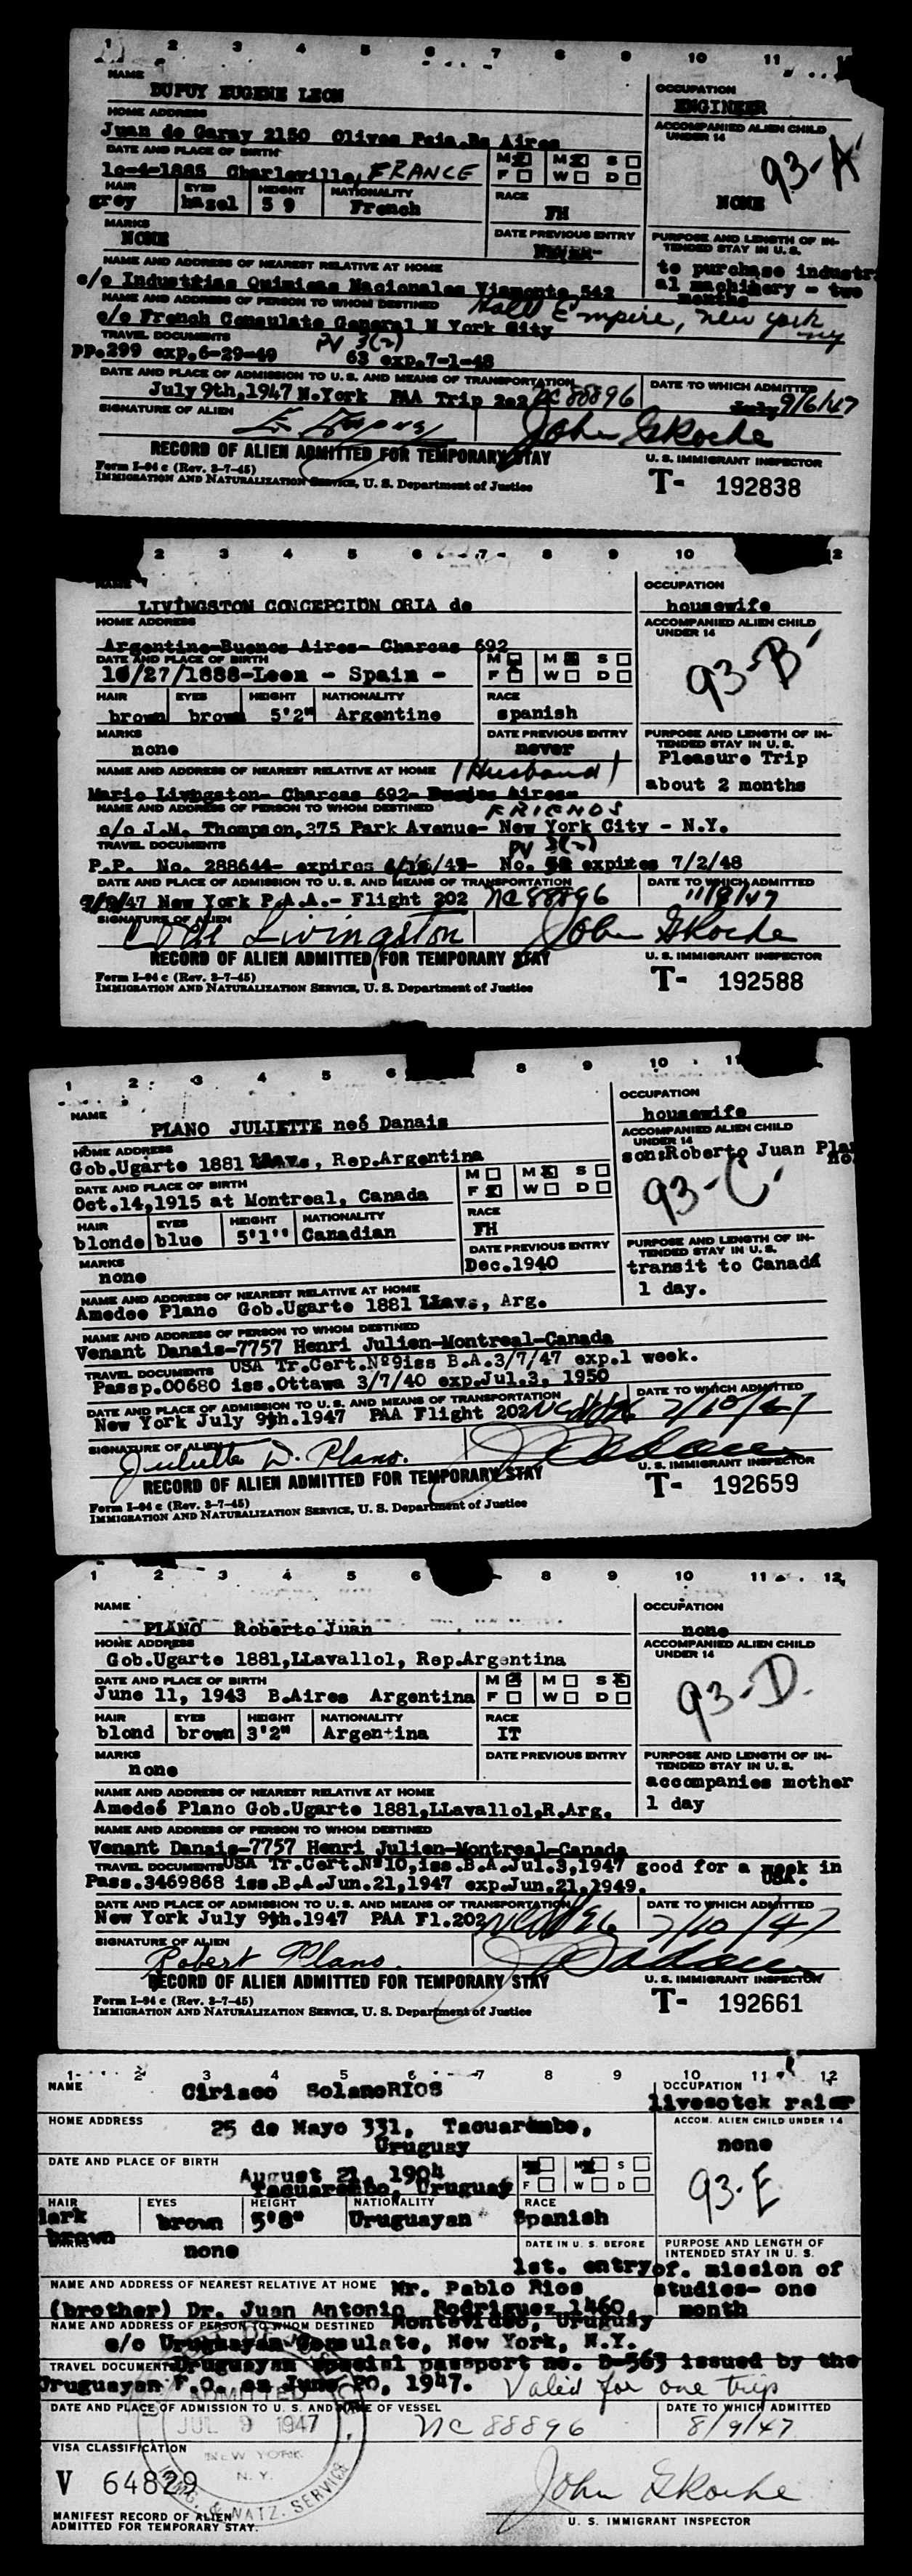 1 2 3 4 5 6 7 8 9 10 11
NAME
DUPUY EUGENE LEON
OCCUPATION
ENGINEER
HOME ADDRESS
Juan de Garay 2150 Olivos Pcia.Bs Aires
ACCOMPANIED ALIEN CHILD
UNDER 14
93-A
NONE
DATE AND PLACE OF BIRTH
10-4-1885 Charleville, FRANCE
M F M W S D
HAIR EYES HEIGHT NATIONALITY RACE
grey hazel 5 9 French FH
MARKS
NONE
DATE PREVIOUS ENTRY
NEVER-
PURPOSE AND LENGTH OF IN-
TENDED STAY IN U. S.
to purchase industri
al machinery - two
months
NAME AND ADDRESS OF NEAREST RELATIVE AT HOME
c/o Industrias Quimicas Nacionales Viamonte 542
NAME AND ADDRESS OF PERSON TO WHOM DESTINED
Hotel Empire, New York NY
c/o French Consulate General N York City
TRAVEL DOCUMENTS
PV 3(2)
PP.299 exp.6-29-49 63 exp.7-1-48
DATE AND PLACE OF ADMISSION TO U. S. AND MEANS OF TRANSPORTATION
July 9th,1947 N.York PAA Trip 202 NC 88896
DATE TO WHICH ADMITTED
9/6/47
SIGNATURE OF ALIEN
E. Dupuy
John G Roche
RECORD OF ALIEN ADMITTED FOR TEMPORARY STAY
U. S. IMMIGRANT INSPECTOR
Form I-94 c (Rev. 3-7-45)
IMMIGRATION AND NATURALIZATION SERVICE, U. S. Department of Justice
T- 192838
2 3 4 5 6 7 8 9 10 12
NAME
LIVINGSTON CONCEPCION ORIA de
OCCUPATION
housewife
HOME ADDRESS
Argentine-Buenos Aires- Charcas 692
ACCOMPANIED ALIEN CHILD
UNDER 14
93-B
DATE AND PLACE OF BIRTH
10/27/1888-Leon - Spain -
M F M W S D
HAIR EYES HEIGHT NATIONALITY RACE
brown brown 5'2" Argentine spanish
MARKS
none
DATE PREVIOUS ENTRY
never
PURPOSE AND LENGTH OF IN-
TENDED STAY IN U. S.
Pleasure Trip
about 2 months
NAME AND ADDRESS OF NEAREST RELATIVE AT HOME (Husband)
Mario Livingston- Charcas 692- Buenos Aires-
NAME AND ADDRESS OF PERSON TO WHOM DESTINED FRIENDS
c/o J.M. Thompson,375 Park Avenue- New York City - N.Y.
TRAVEL DOCUMENTS
PV 3(2)
P.P. No. 288644- expires No. expires 7/2/48
DATE AND PLACE OF ADMISSION TO U. S. AND MEANS OF TRANSPORTATION
7/9/47 New York P.A.A.- Flight 202 NC 88896
DATE TO WHICH ADMITTED
11/8/47
SIGNATURE OF ALIEN
Livingston
John G Roche
RECORD OF ALIEN ADMITTED FOR TEMPORARY STAY
U. S. IMMIGRANT INSPECTOR
Form I-94 c (Rev. 3-7-45)
IMMIGRATION AND NATURALIZATION SERVICE, U. S. Department of Justice
T- 192588
1 2 3 4 5 6 8 9 10 11
NAME
PLANO JULIETTE neé Danais
OCCUPATION
housewife
HOME ADDRESS
Gob.Ugarte 1881 LLav., Rep.Argentina
ACCOMPANIED ALIEN CHILD
UNDER 14
son:Roberto Juan Pla
no.
93-C
DATE AND PLACE OF BIRTH
Oct.14,1915 at Montreal, Canada
M F M W S D
HAIR EYES HEIGHT NATIONALITY RACE
blonde blue 5'1'' Canadian FH
MARKS
none
DATE PREVIOUS ENTRY
Dec.1940
PURPOSE AND LENGTH OF IN-
TENDED STAY IN U. S.
transit to Canadá
1 day.
NAME AND ADDRESS OF NEAREST RELATIVE AT HOME
Amedee Plano Gob.Ugarte 1881 LLav., Arg.
NAME AND ADDRESS OF PERSON TO WHOM DESTINED
Venant Danais-7757 Henri Julien-Montreal-Canada
TRAVEL DOCUMENTS USA Tr.Cert.Nº9iss B.A.3/7/47 exp.1 week.
Passp.00680 iss.Ottawa 3/7/40 exp.Jul.3, 1950
DATE AND PLACE OF ADMISSION TO U. S. AND MEANS OF TRANSPORTATION
New York July 9th.1947 PAA Flight 202 NC 88896
DATE TO WHICH ADMITTED
7/10/47
SIGNATURE OF ALIEN
Juliette D. Plano.
RECORD OF ALIEN ADMITTED FOR TEMPORARY STAY
U. S. IMMIGRANT INSPECTOR
Form I-94 c (Rev. 3-7-45)
IMMIGRATION AND NATURALIZATION SERVICE, U. S. Department of Justice
T- 192659
1 2 3 4 5 6 8 9 10 11 12
NAME
PLANO Roberto Juan
OCCUPATION
none
HOME ADDRESS
Gob.Ugarte 1881,LLavallol, Rep.Argentina
ACCOMPANIED ALIEN CHILD
UNDER 14
93-D.
DATE AND PLACE OF BIRTH
June 11, 1943 B.Aires Argentina
M F M W S D
HAIR EYES HEIGHT NATIONALITY RACE
blond brown 3'2" Argentina IT
MARKS
none
DATE PREVIOUS ENTRY
PURPOSE AND LENGTH OF IN-
TENDED STAY IN U. S.
accompanies mother
1 day
NAME AND ADDRESS OF NEAREST RELATIVE AT HOME
Amedeé Plano Gob.Ugarte 1881,LLavallol,R.Arg.
NAME AND ADDRESS OF PERSON TO WHOM DESTINED
Venant Danais-7757 Henri Julien-Montreal-Canada
TRAVEL DOCUMENTS USA Tr.Cert.Nº10,iss.B.A.Jul.3,1947 good for a week in
USA.
Pass.3469868 iss.B.A.Jun.21,1947 exp.Jun.21,1949.
DATE AND PLACE OF ADMISSION TO U. S. AND MEANS OF TRANSPORTATION
New York July 9th.1947 PAA Fl.202 NC 88896
DATE TO WHICH ADMITTED
7/10/47
SIGNATURE OF ALIEN
Robert Plano.
RECORD OF ALIEN ADMITTED FOR TEMPORARY STAY
U. S. IMMIGRANT INSPECTOR
Form I-94 c (Rev. 3-7-45)
IMMIGRATION AND NATURALIZATION SERVICE, U. S. Department of Justice
T- 192661
1 2 3 4 5 6 7 8 9 10 11 12
NAME
Ciriaco SolanoRIOS
OCCUPATION
livesotck raier
HOME ADDRESS
25 de Mayo 331, Tacuarembo,
Uruguay
ACCOM. ALIEN CHILD UNDER 14
none
93-E
DATE AND PLACE OF BIRTH
August 21, 1904
Tacuarembo, Uruguay
M F M W S D
HAIR EYES HEIGHT NATIONALITY RACE
dark brown brown 5'8" Uruguayan Spanish
MARKS
none
DATE IN U. S. BEFORE
1st. entry
PURPOSE AND LENGTH OF
INTENDED STAY IN U. S.
of. mission of
studies- one
month
NAME AND ADDRESS OF NEAREST RELATIVE AT HOME Mr. Pablo Rios
(brother) Dr. Juan Antonio Rodriguez 1460
Montevideo, Uruguay
NAME AND ADDRESS OF PERSON TO WHOM DESTINED
c/o Uruguayan Consulate, New York, N.Y.
TRAVEL DOCUMENTS Uruguayan special passport no. D-563 issued by the
Uruguayan F.O. on June 20, 1947. Valid for one trip
DATE AND PLACE OF ADMISSION TO U. S. AND NAME OF VESSEL
NC 88896
DATE TO WHICH ADMITTED
8/9/47
ADMITTED
JUL 9 1947
NEW YORK
N. Y.
IMMIG. & NATZ. SERVICE
VISA CLASSIFICATION
V 64829
John G Roche
MANIFEST RECORD OF ALIEN
ADMITTED FOR TEMPORARY STAY.
U. S. IMMIGRANT INSPECTOR